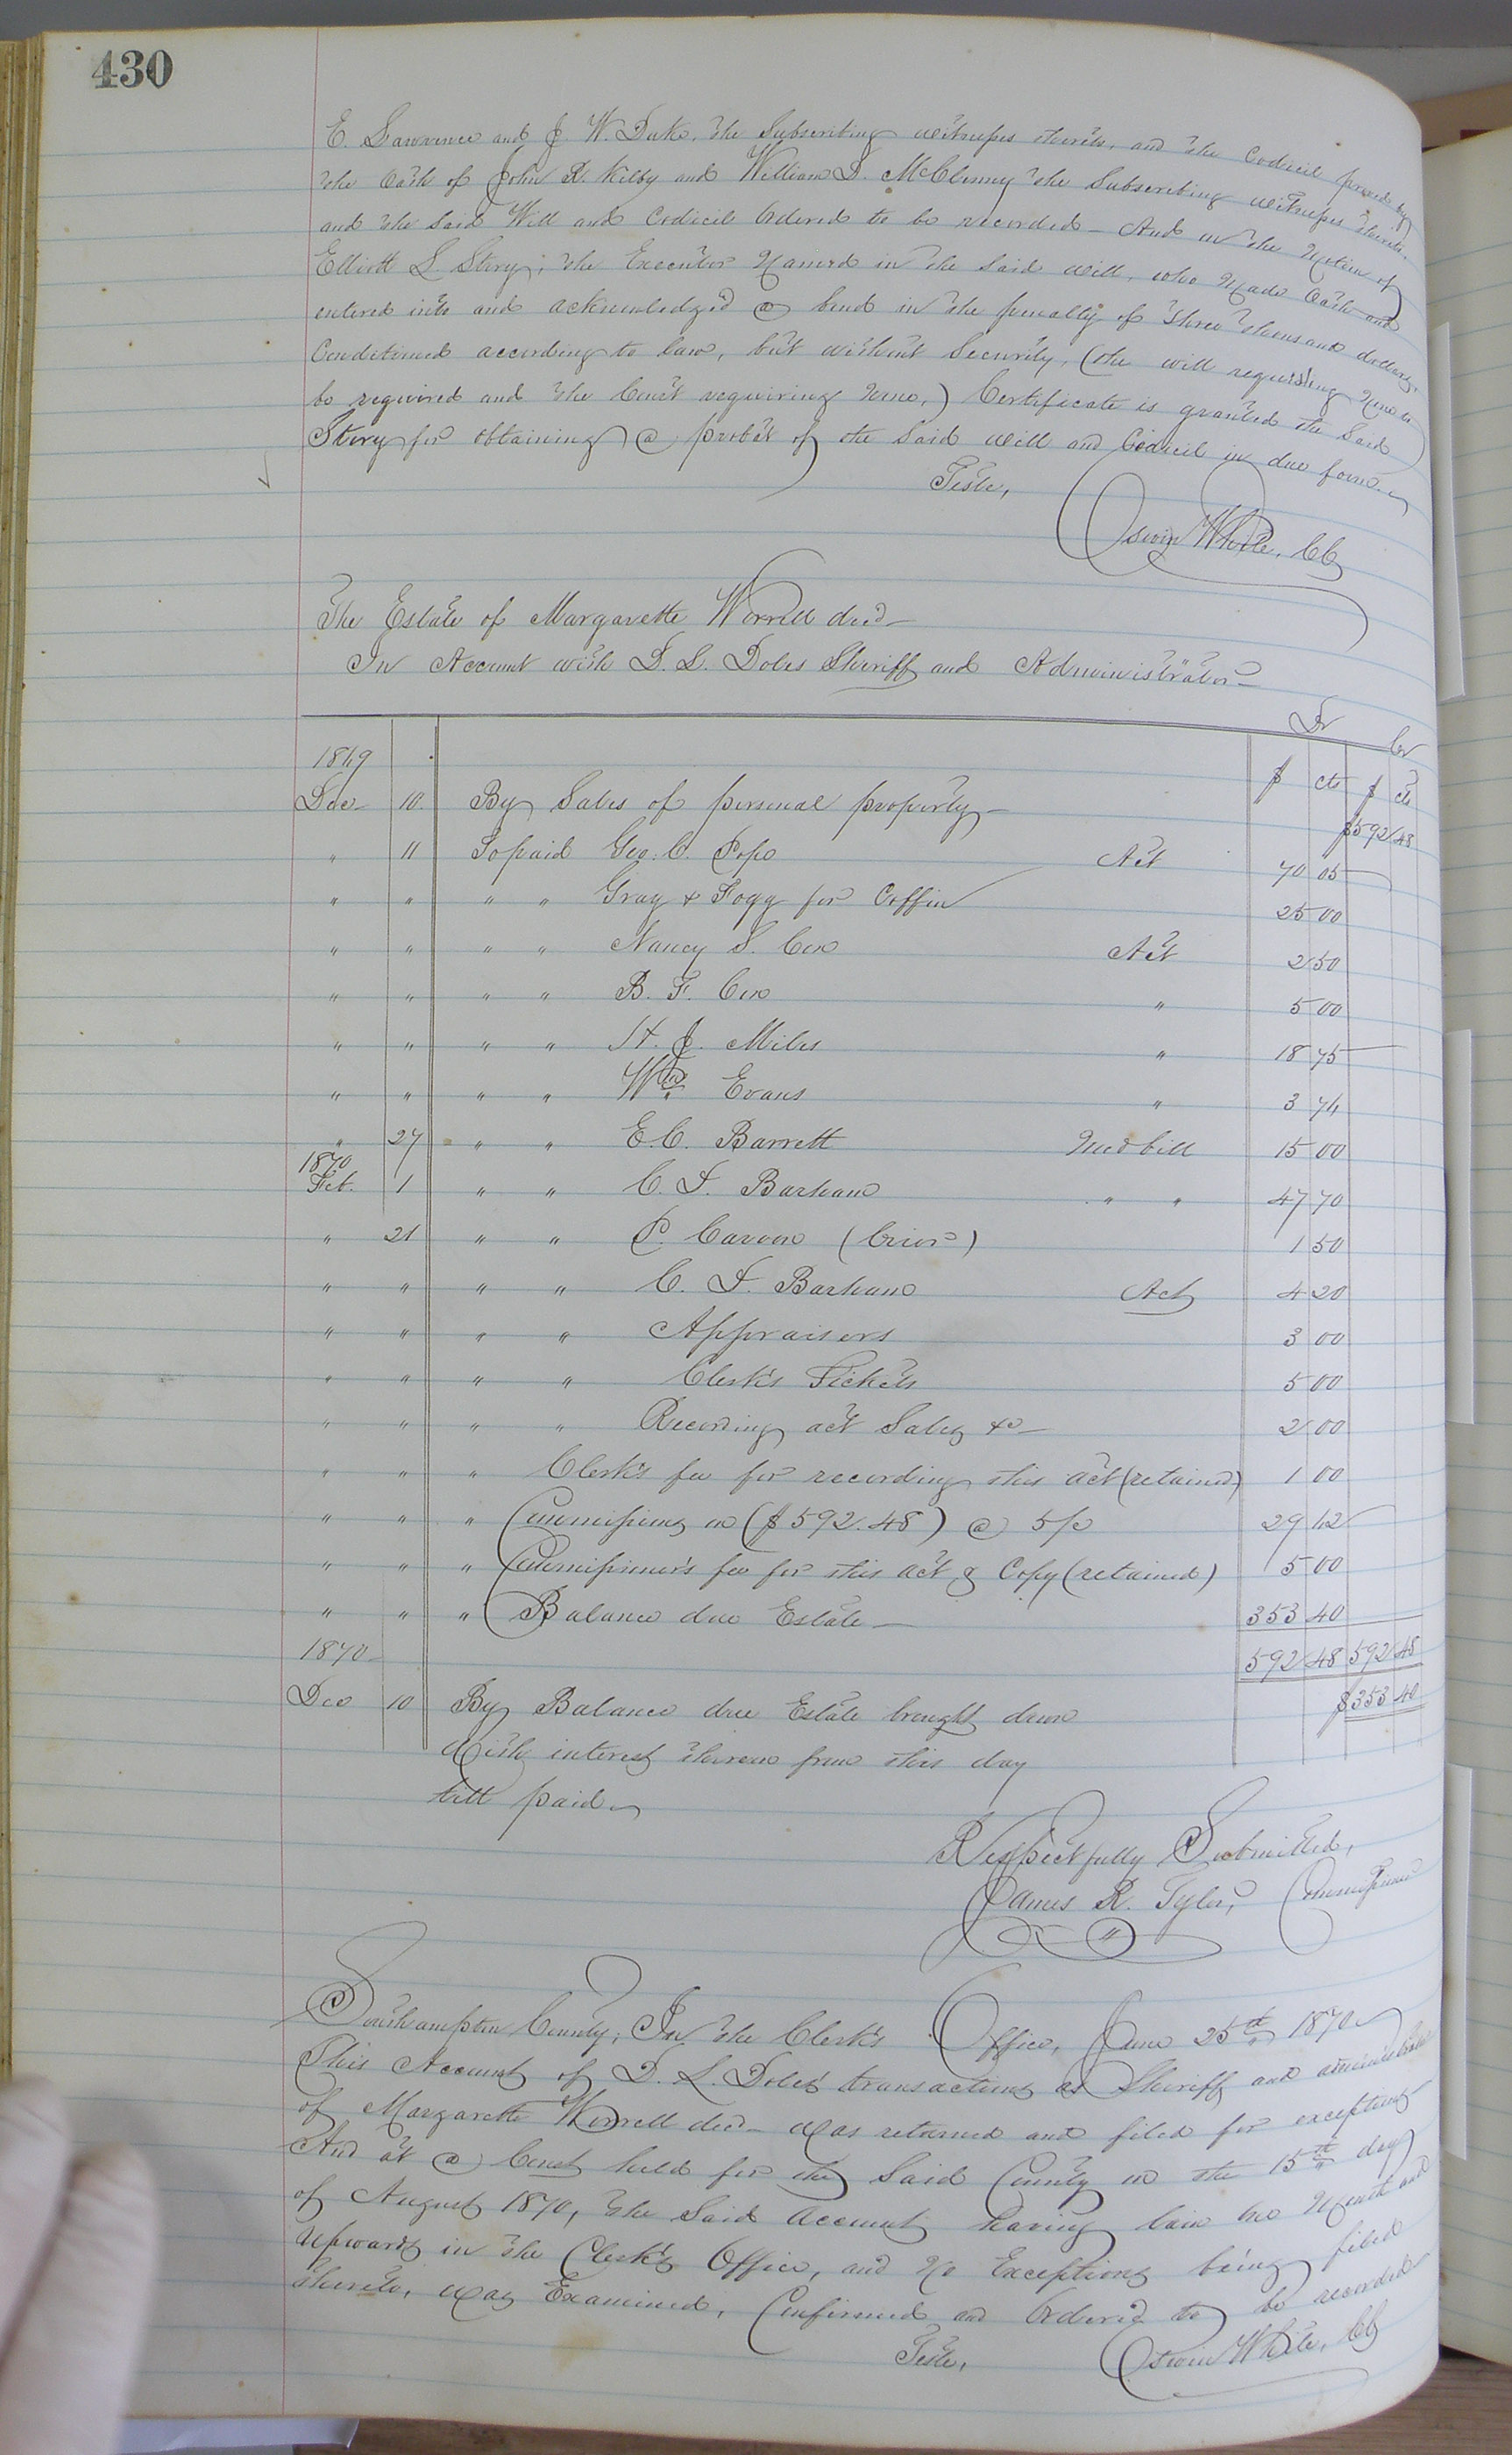 430
E. Lawrence and J. W. Duke, the Subscribing witnesses thereto, and the Codicil proved by
the Oath of John R. Kilby and William D. McClenny the Subscribing witnesses thereto,
and the said Will and Codicil Ordered to be recorded – And on the Motion of
Elliott L. Story, the Executor Named in the said will, who Made Oath and
entered into and acknowledged a bond in the penalty of three thousand dollars,
Conditioned according to law, but without Security, (the will requesting None to
be required and the Court requiring None,) Certificate is granted the said
Story for obtaining a probat of the said will and Codicil in due form.
Teste,
Oswin White, CC
The Estate of Margarette Worrell decd –
In Account with D. L. Doles Sheriff and Administrator –
Dr Cr
1869 $ cts $ cts
Dec 10. By Sales of personal property – $592 48
" 11 To paid Geo. C. Pope Act 70 05
" " " " Gray & Fogg for Coffin 25 00
" " " " Nancy S. Cox Act 2 50
" " " " B. F. Cox " 5 00
" " " " H. J. Miles " 18 75
" " " " Wm Evans " 3 76
" 27 " " E. C. Barrett Med bill 15 00
1870
Feb. 1 " " C. F. Barham " " 47 70
" 21 " " P. (Crier) 1 50
" " " " C. F. Barham Act 4 20
" " " " Appraisers 3 00
" " " " Clerk's Tickets 5 00
" " " " Recording act Sales &c – 2 00
" " " Clerk's fee for recording this act (retained) 1 00
" " " Commissions on ($592.48) @ 5pc 29 62
" " " Commissioner's fee for this act & Copy (retained) 5 00
" " " Balance due Estate – 353 40
1870 592 48 592 48
Dec 10 By Balance due Estate brought down $353 40
with interest thereon from this day
till paid
Respectfully Submitted,
James R. Tyler, Commissioner
Southampton County, In the Clerk's Office, June 25th 1870
This Account of D. L. Doles' transactions as Sheriff and administrator
of Margarette Worrell decd – was returned and filed for exceptions –
And at a Court held for the said County on the 15th day
of August 1870, the said Account having lain one Month and
upwards in the Clerk's Office, and No Exceptions being filed
thereto, was Examined, Confirmed and Ordered to be recorded
Teste, Oswin White, CC